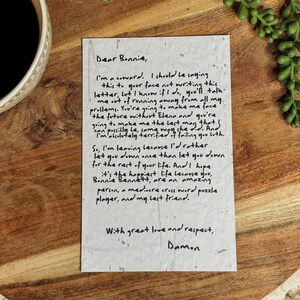 Dear Bonnie,
I'm a coward. I should be saying
this to your face not writing this
letter, but I know if I do, you'll talk
me out of running away from all my
problems. You're going to make me face
the future without Elena and you're
going to make me the best man that I
can possibly be, same way she did. And
I'm absolutely terrified of failing you both.
So, I'm leaving because I'd rather
let you down once than let you down
for the rest of your life. And I hope
it's the happiest life because you,
Bonnie Bennett, are an amazing
person, a mediocre cross word puzzle
player, and my best friend.
With great love and respect,
Damon